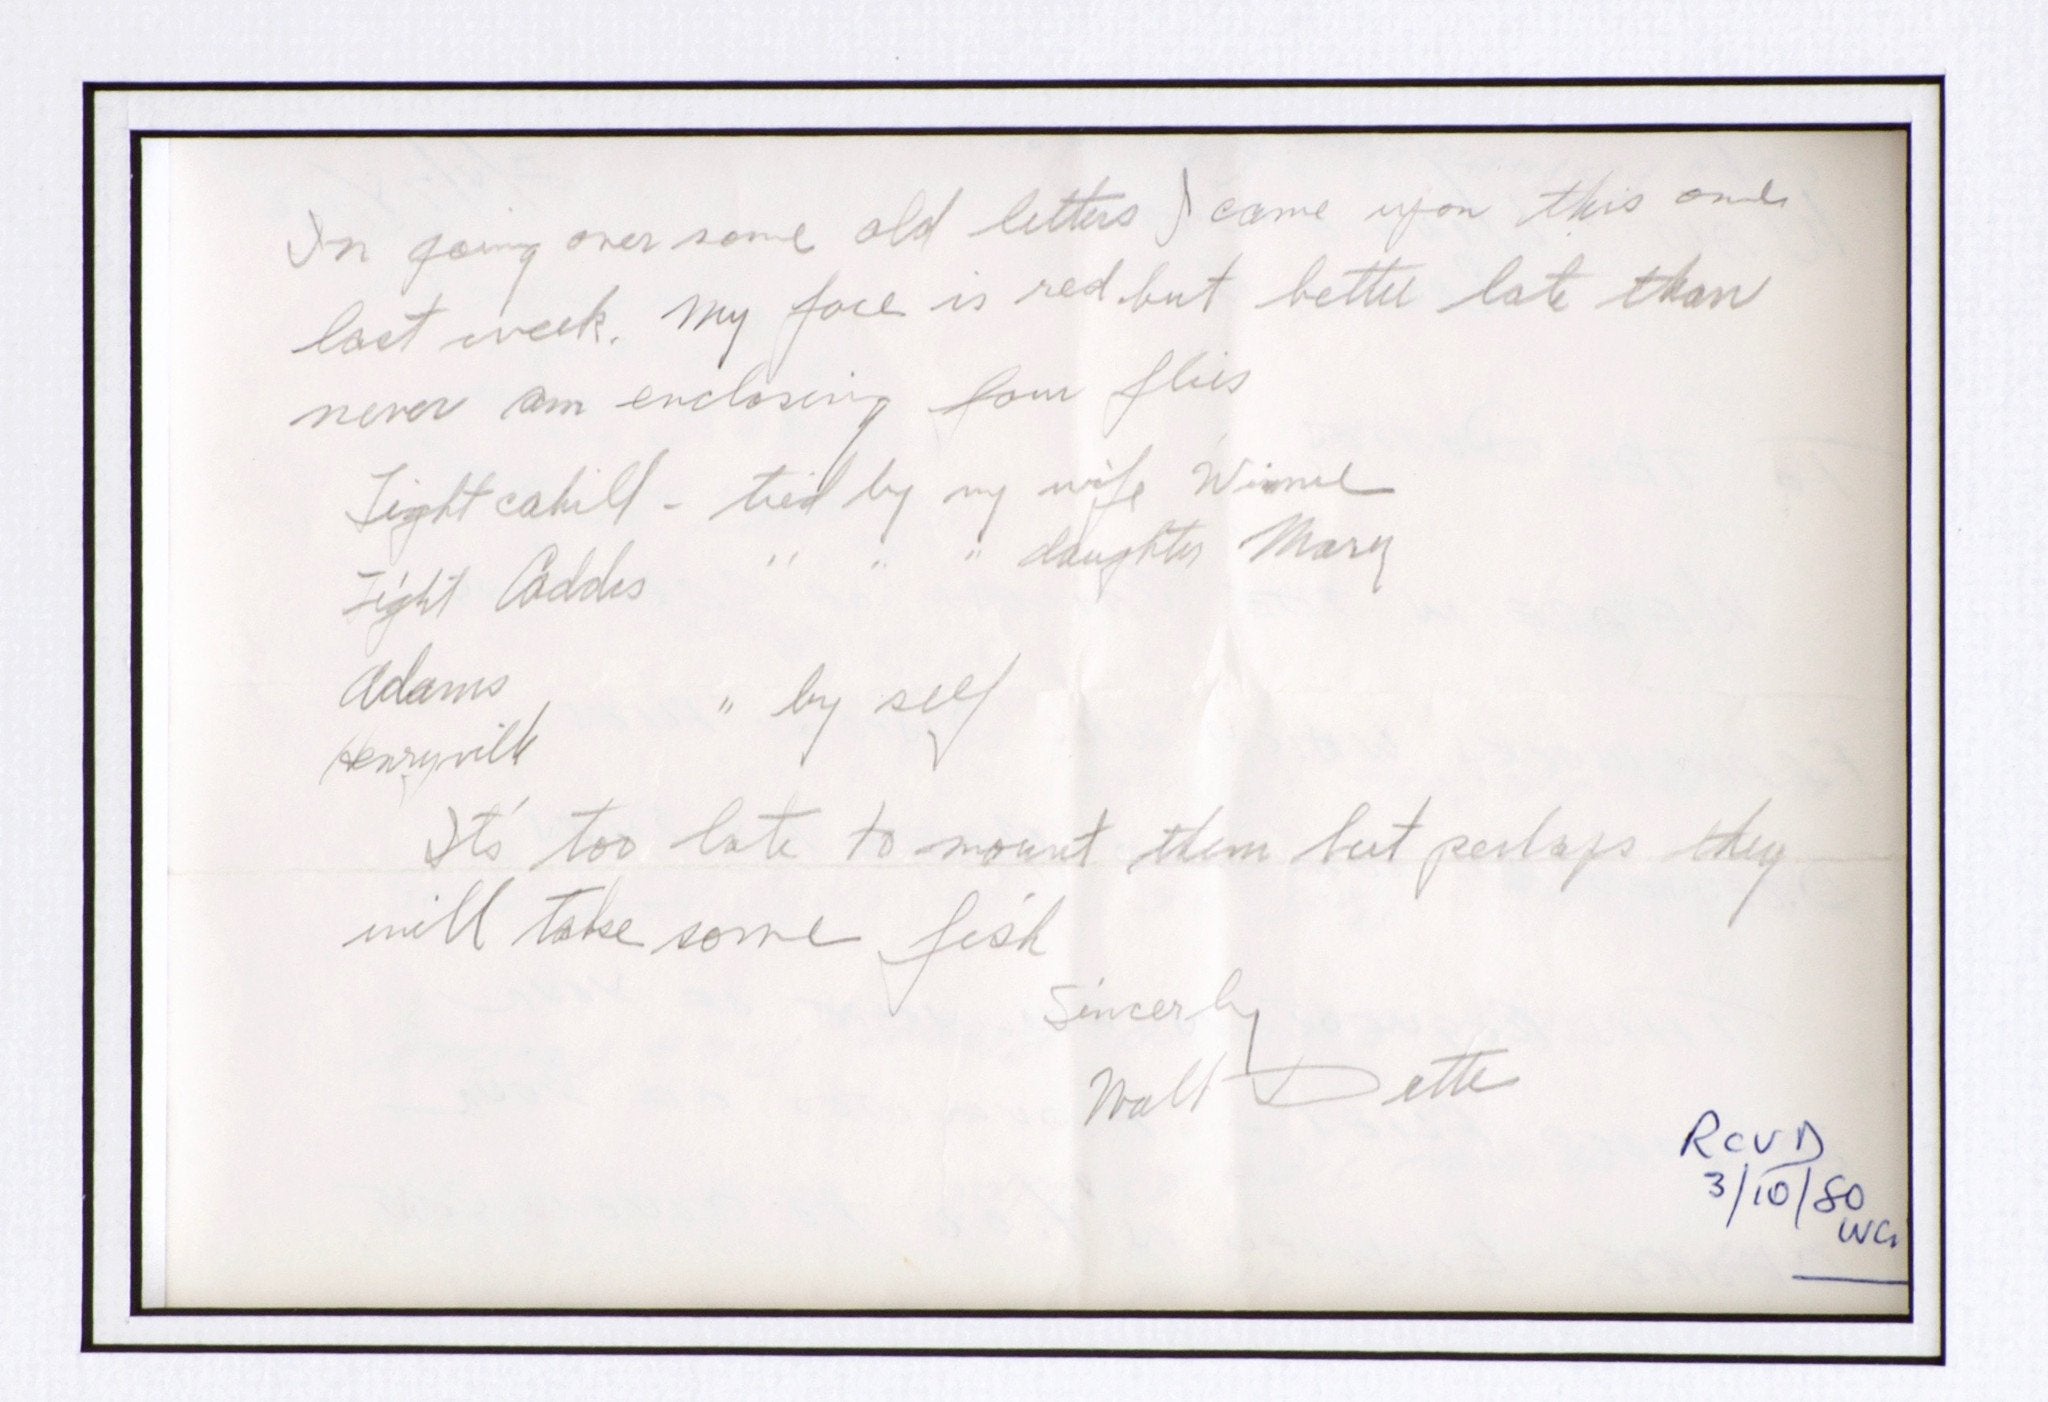 In going over some old letters I came upon this one
last week. My face is red but better late than
never am enclosing four flies
Light cahill - tied by my wife Winnie
Light Caddis " " " daughter Mary
Adams
" by self
Henryville
It's too late to mount them but perhaps they
will take some fish
Sincerly
Walt Dette
RCVD
3/10/80
WG